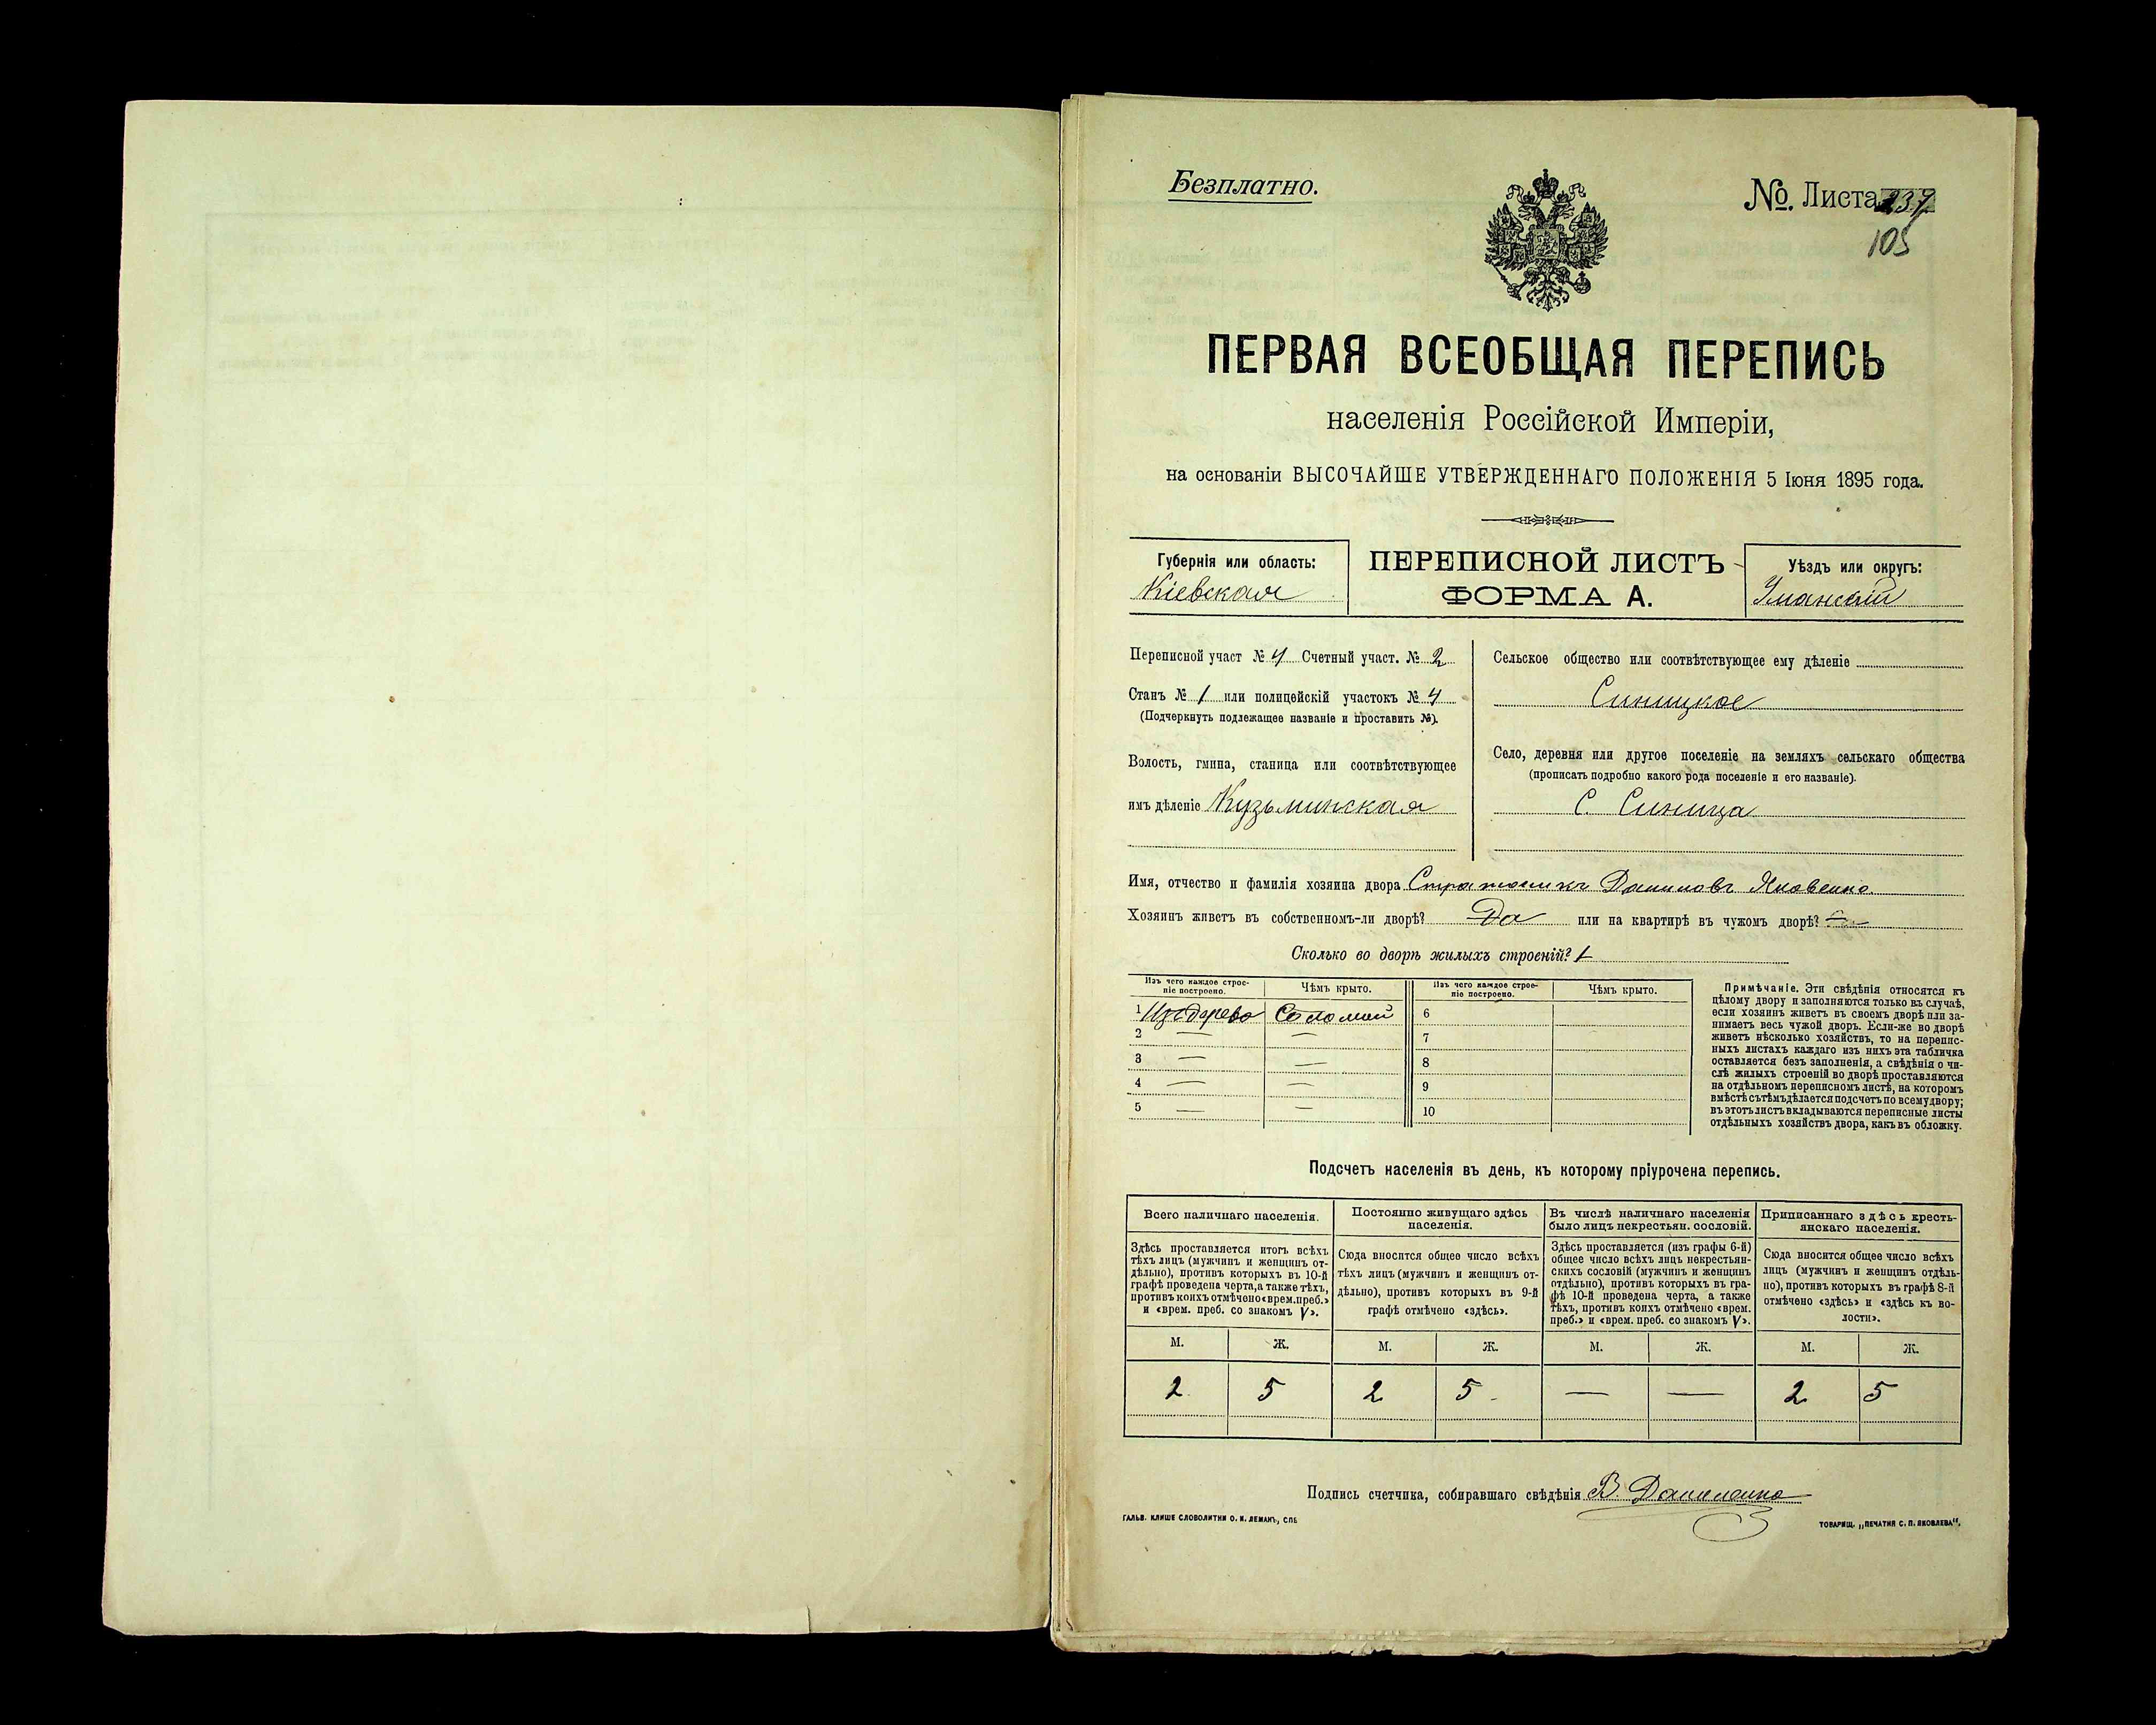 Безплатно.
№. Листа 237
105
ПЕРВАЯ ВСЕОБЩАЯ ПЕРЕПИСЬ
населенія Россійской Имперіи,
на основаніи ВЫСОЧАЙШЕ УТВЕРЖДЕННАГО ПОЛОЖЕНІЯ 5 Іюня 1895 года.
Губернія или область:
Кіевская
ПЕРЕПИСНОЙ ЛИСТЪ
ФОРМА А.
Уѣздъ или округъ:
Уманскій
Переписной участ № 4 Счетный участ. № 2
Станъ № 1 или полицейскій участокъ № 4
(Подчеркнуть подлежащее названіе и проставить №).
Волость, гмина, станица или соотвѣтствующее
имъ дѣленіе Кузьминская
Сельское общество или соотвѣтствующее ему дѣленіе
Синицкое
Село, деревня или другое поселеніе на земляхъ сельскаго общества
(прописать подробно какого рода поселеніе и его названіе).
С. Синица
Имя, отчество и фамилія хозяина двора Даниловъ Яковенко
Хозяинъ живетъ въ собственномъ-ли дворѣ? Да или на квартирѣ въ чужомъ дворѣ? —
Сколько во дворѣ жилыхъ строеній? 1
Изъ чего каждое строе-
ніе построено.
Чѣмъ крыто.
Изъ чего каждое строе-
ніе построено.
Чѣмъ крыто.
1 Изъ дерева Соломой 6
2 — — 7
3 — — 8
4 — — 9
5 — — 10
Примѣчаніе. Эти свѣдѣнія относятся къ
цѣлому двору и заполняются только въ случаѣ,
если хозяинъ живетъ въ своемъ дворѣ или за-
нимаетъ весь чужой дворъ. Если-же во дворѣ
живетъ нѣсколько хозяйствъ, то на перепис-
ныхъ листахъ каждаго изъ нихъ эта табличка
оставляется безъ заполненія, а свѣдѣнія о чи-
слѣ жилыхъ строеній во дворѣ проставляются
на отдѣльномъ переписномъ листѣ, на которомъ
вмѣстѣ съ тѣмъ дѣлается подсчетъ по всему двору;
въ этотъ листъ вкладываются переписные листы
отдѣльныхъ хозяйствъ двора, какъ въ обложку.
Подсчетъ населенія въ день, къ которому пріурочена перепись.
Всего наличнаго населенія.
Здѣсь проставляется итогъ всѣхъ
тѣхъ лицъ (мужчинъ и женщинъ от-
дѣльно), противъ которыхъ въ 10-й
графѣ проведена черта, а также тѣхъ,
противъ коихъ отмѣчено «врем. преб.»
и «врем. преб. со знакомъ V».
Постоянно живущаго здѣсь
населенія.
Сюда вносится общее число всѣхъ
тѣхъ лицъ (мужчинъ и женщинъ от-
дѣльно), противъ которыхъ въ 9-й
графѣ отмѣчено «здѣсь».
Въ числѣ наличнаго населенія
было лицъ некрестьян. сословій.
Здѣсь проставляется (изъ графы 6-й)
общее число всѣхъ лицъ некрестьян-
скихъ сословій (мужчинъ и женщинъ
отдѣльно), противъ которыхъ въ гра-
фѣ 10-й проведена черта, а также
тѣхъ, противъ коихъ отмѣчено «врем.
преб.» и «врем. преб. со знакомъ V».
Приписаннаго здѣсь кресть-
янскаго населенія.
Сюда вносится общее число всѣхъ
лицъ (мужчинъ и женщинъ отдѣль-
но), противъ которыхъ въ графѣ 8-й
отмѣчено «здѣсь» и «здѣсь къ во-
лости».
М. Ж. М. Ж. М. Ж. М. Ж.
2 5 2 5 — — 2 5
Подпись счетчика, собиравшаго свѣдѣнія В. Даниленко
ГАЛЬВ. КЛИШЕ СЛОВОЛИТНИ О. И. ЛЕМАНЪ, СПБ
ТОВАРИЩ. „ПЕЧАТНЯ С. П. ЯКОВЛЕВА".